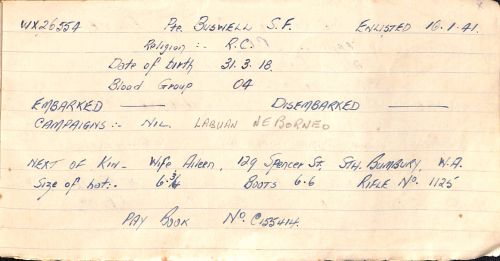 WX26554 Pte. BUSWELL S.F. ENLISTED 16.1.41.
Religion :- R.C.
Date of birth 31.3.18.
Blood Group O4
EMBARKED —— DISEMBARKED ——
CAMPAIGNS :- NIL. LABUAN NE BORNEO
NEXT OF KIN - Wife Aileen, 129 Spencer St, STH. BUNBURY, W.A.
Size of hat:- 6 3/4 BOOTS 6.6 RIFLE No. 1125
PAY BOOK No. C155414.